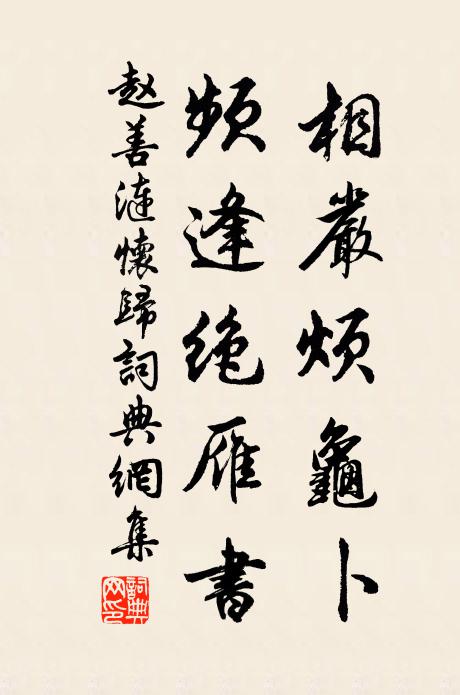 相嚴煩龜卜
頻逢绝雁書
赵善漣懷歸詞典網集
詞典网印